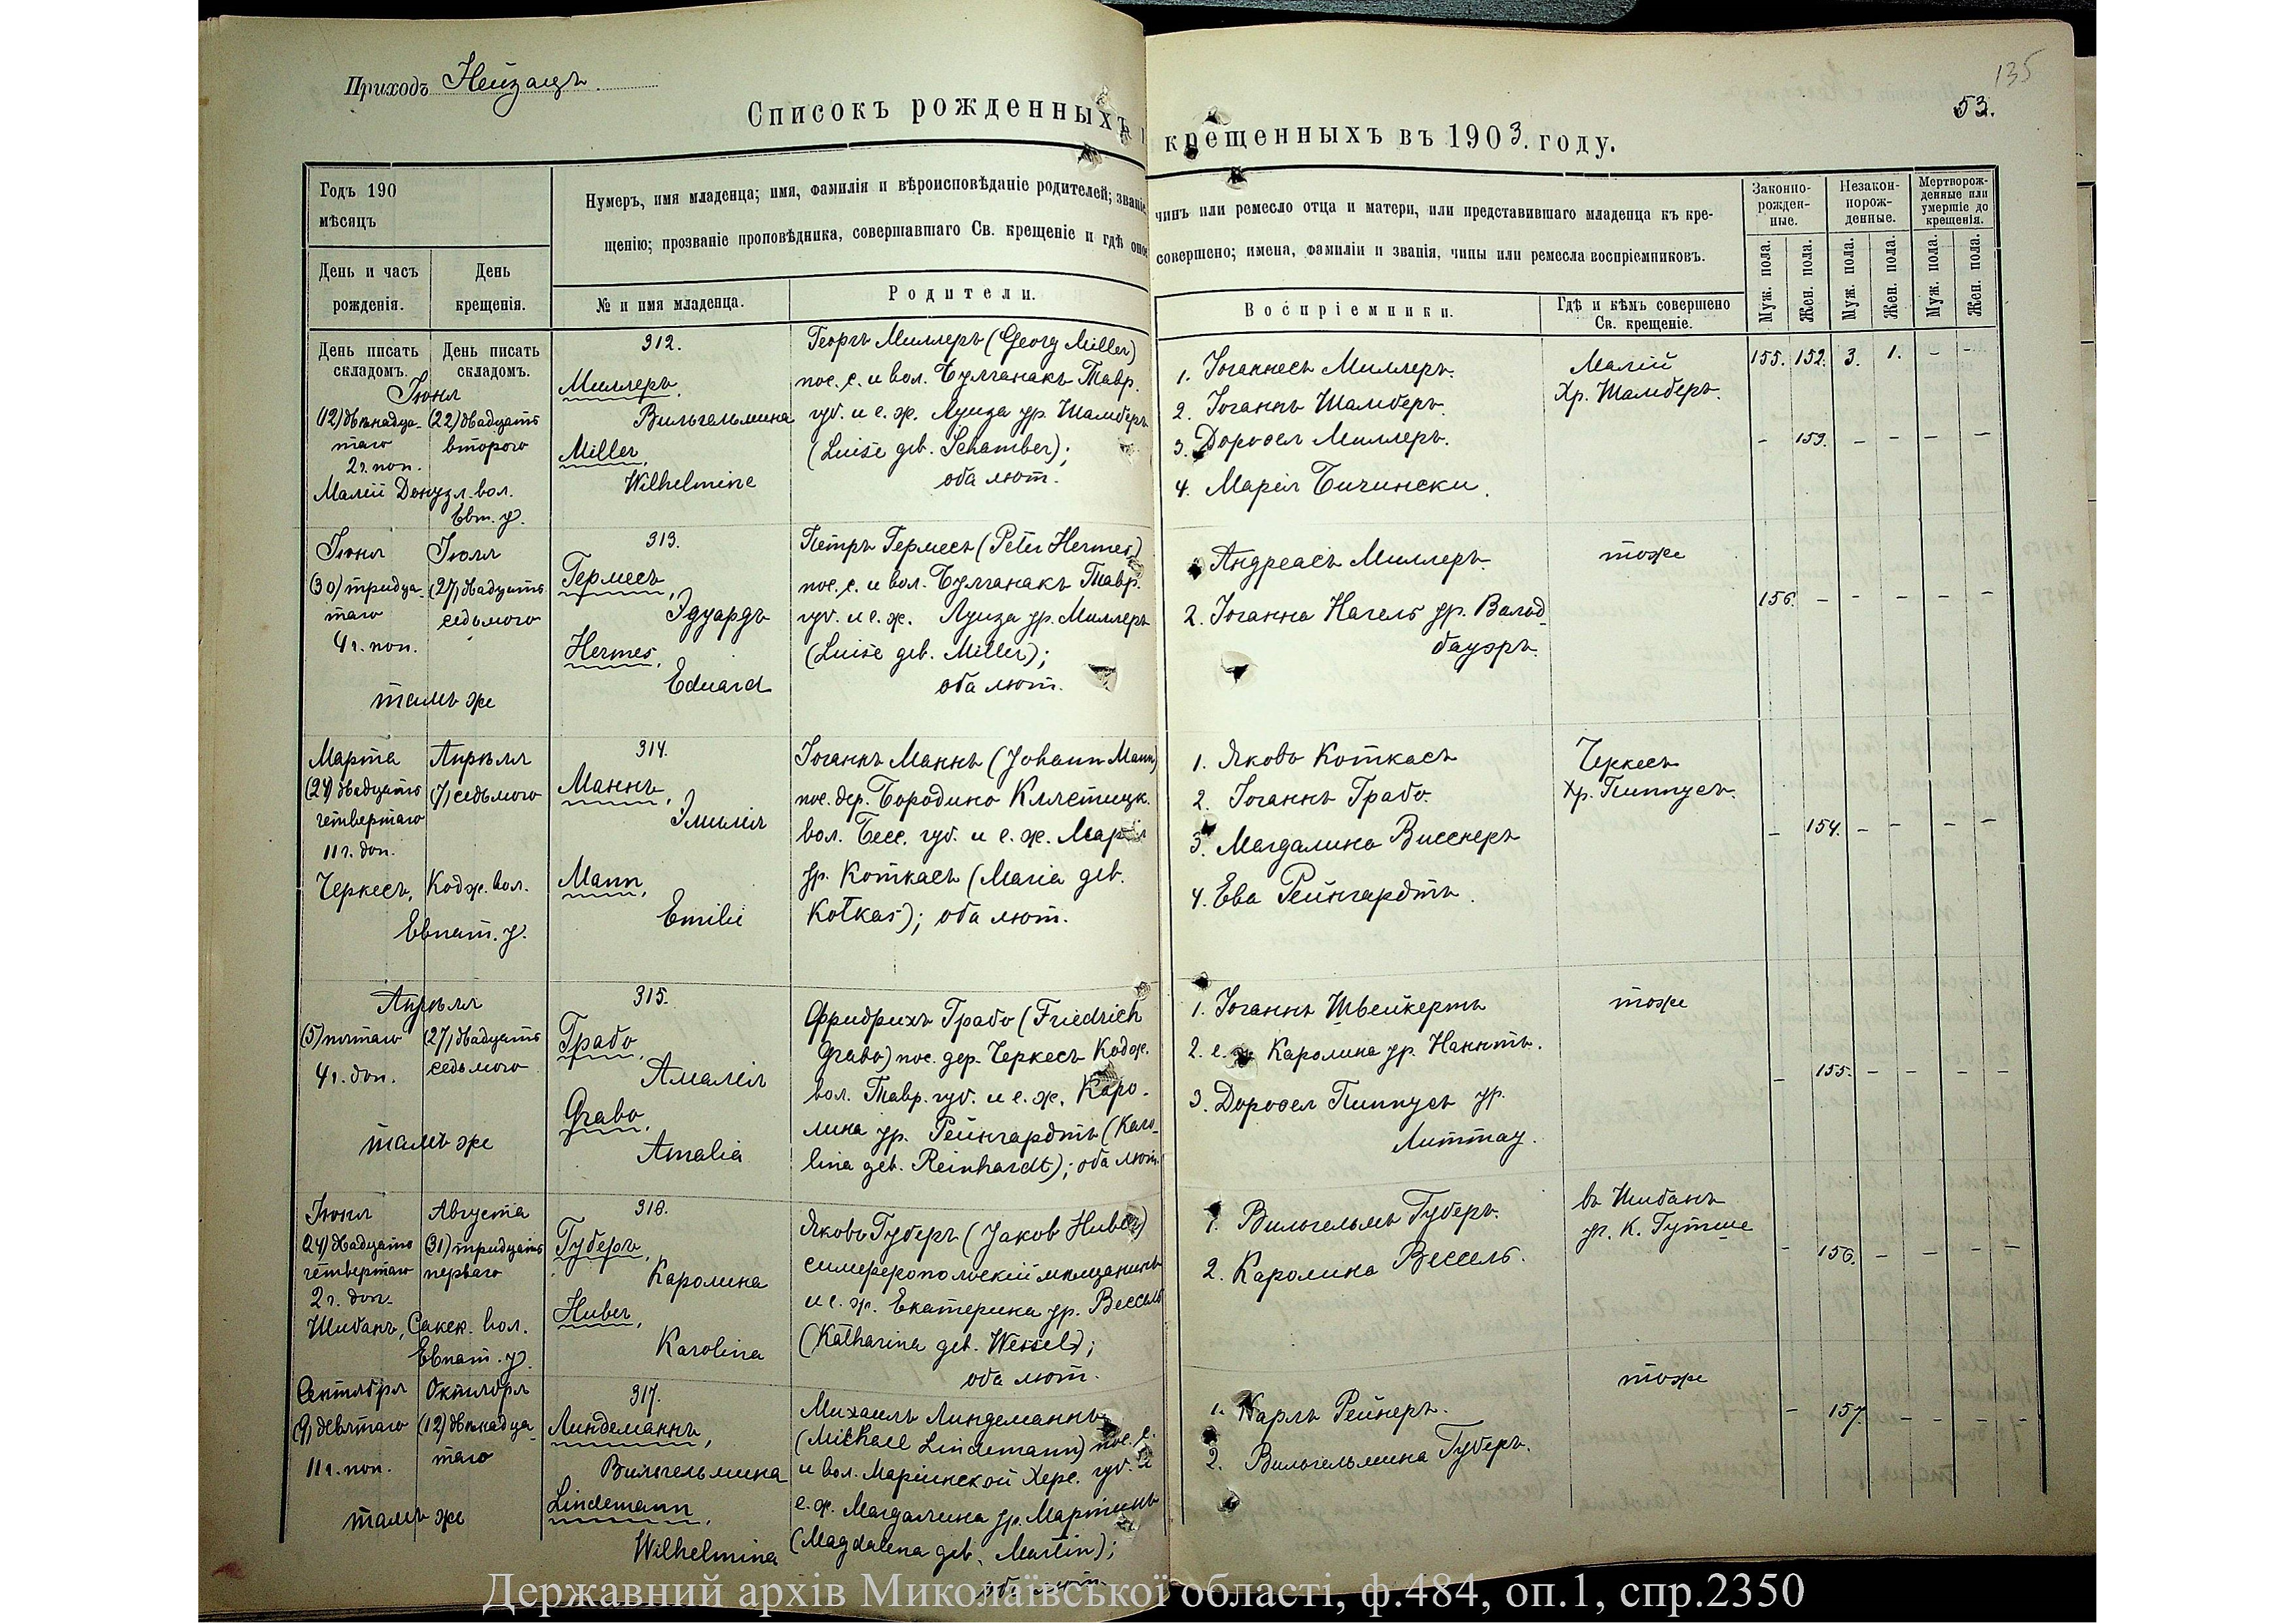 Приходъ Нейзацъ
135
53.
Списокъ рожденныхъ
крещенныхъ въ 1903. году.
Годъ 190
мѣсяцъ
День и часъ
рожденія.
День
крещенія.
Нумеръ, имя младенца; имя, фамилія и вѣроисповѣданіе родителей; званіе
щенію; прозваніе проповѣдника, совершавшаго Св. крещеніе и гдѣ оно
№ и имя младенца.
Родители.
чинъ или ремесло отца и матери, или представившаго младенца къ кре-
совершено; имена, фамиліи и званія, чины или ремесла воспріемниковъ.
Воспріемники.
Гдѣ и кѣмъ совершено
Св. крещеніе.
Законно-
рожден-
ные.
Незакон-
норож-
денные.
Мертворож-
денные или
умершіе до
крещенія.
Муж. пола.
Жен. пола.
Муж. пола.
Жен. пола.
Муж. пола.
Жен. пола.
День писать
складомъ.
День писать
складомъ.
Іюня
(12) двѣнадца-
таго
2 ч. поп.
(22) двадцать
второго
Малей Донузл. вол.
Евп. у.
312.
Миллеръ,
Вильгельмина
Miller,
Wilhelmine
Георгъ Миллеръ (Georg Miller)
пос. с. и вол. Булганакъ Тавр.
губ. и е. ж. Луиза ур. Шамберъ
(Luise geb. Schamber);
оба лют.
1. Іоганнесъ Миллеръ.
2. Іоганнъ Шамберъ.
3. Доровея Миллеръ.
4. Марія Бичински.
Малей
Хр. Шамберъ.
155. 152. 3. 1. - -
- 153. - - - -
Іюня
(30) тридца-
таго
4 ч. поп.
Іюля
(27) двадцать
седьмого
тамъ же
313.
Гермесъ,
Эдуардъ
Hermes,
Eduard
Петръ Гермесъ (Peter Hermes)
пос. с. и вол. Булганакъ Тавр.
губ. и е. ж. Луиза ур. Миллеръ
(Luise geb. Miller);
оба лют.
Андреасъ Миллеръ.
2. Іоганна Нагель ур. Вальд-
бауэръ.
тоже
156. - - - - -
Марта
(24) двадцать
четвертаго
11 ч. доп.
Апрѣля
(7) седьмого
Черкесъ, Кодж. вол.
Евпат. у.
314.
Маннъ,
Эмилія
Mann,
Emilie
Іоганнъ Маннъ (Johann Mann)
пос. дер. Бородино Клястицк.
вол. Бесс. губ. и е. ж. Марія
ур. Коткасъ (Maria geb.
Kotkas); оба лют.
1. Яковъ Коткасъ
2. Іоганнъ Грабо.
3. Магдалина Висснеръ
4. Ева Рейнгардтъ.
Черкесъ
Хр. Пиппусъ.
- 154. - - - -
Апрѣля
(5) пятаго
4 ч. доп.
(27) двадцать
седьмого
тамъ же
315.
Грабо,
Амалія
Grabo,
Amalia
Фридрихъ Грабо (Friedrich
Grabo) пос. дер. Черкесъ Кодж.
вол. Тавр. губ. и е. ж. Каро-
лина ур. Рейнгардтъ (Karo-
lina geb. Reinhardt); оба лют.
1. Іоганнъ Швейкертъ
2. е. ж. Каролина ур. Наннтъ.
3. Доровея Пиппусъ ур.
Литтау.
тоже
- 155. - - - -
Іюня
(24) двадцать
четвертаго
2 ч. доп.
Августа
(31) тридцать
перваго
Шибанъ, Сакск. вол.
Евпат. у.
316.
Губеръ,
Каролина
Huber,
Karolina
Яковъ Губеръ (Jakob Huber)
симферопольскій мѣщанинъ
и е. ж. Екатерина ур. Вессель
(Katharina geb. Wessel);
оба лют.
1. Вильгельмъ Губеръ.
2. Каролина Вессель.
въ Шибанъ
уч. К. Гутше
- 156. - - - -
Сентября
(9) девятаго
11 ч. поп.
Октября
(12) двѣнадца-
таго
тамъ же
317.
Линдеманнъ,
Вильгельмина
Lindemann,
Wilhelmina
Михаилъ Линдеманнъ
(Michael Lindemann) пос. с.
и вол. Маріинской Херс. губ. и
е. ж. Магдалина ур. Мартинъ
(Magdalena geb. Martin);
оба лют.
1. Карлъ Рейнеръ.
2. Вильгельмина Губеръ.
тоже
- 157. - - - -
Державний архів Миколаївської області, ф.484, оп.1, спр.2350